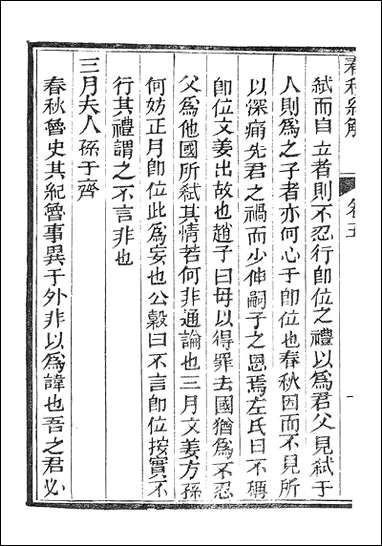 春秋經解
卷五
弑而自立者則不忍行即位之禮以為君父見弑于
人則為之子者亦何心于即位也春秋因而不見所
以深痛先君之禍而少伸嗣子之恩焉左氏曰不稱
即位文姜出故也趙子曰母以得罪去國猶為不忍
父為他國所弑其情若何非通論也三月文姜方孫
何妨正月即位此為妄也公穀曰不言即位按實不
行其禮謂之不言非也
三月夫人孫于齊
春秋魯史其紀魯事異于外非以為諱也吾之君必